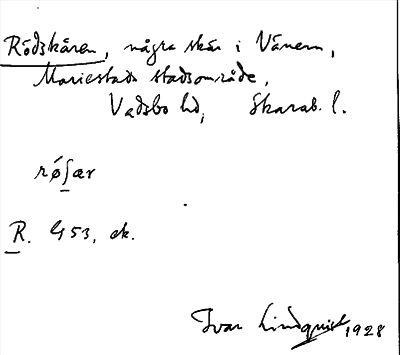 Rödskären, några skär i Vänern,
Mariestads stadsområde,
Vadsbo hd, Skarab. l.
røʃær
R. G 53, ek.
Ivar Lindquist 1928